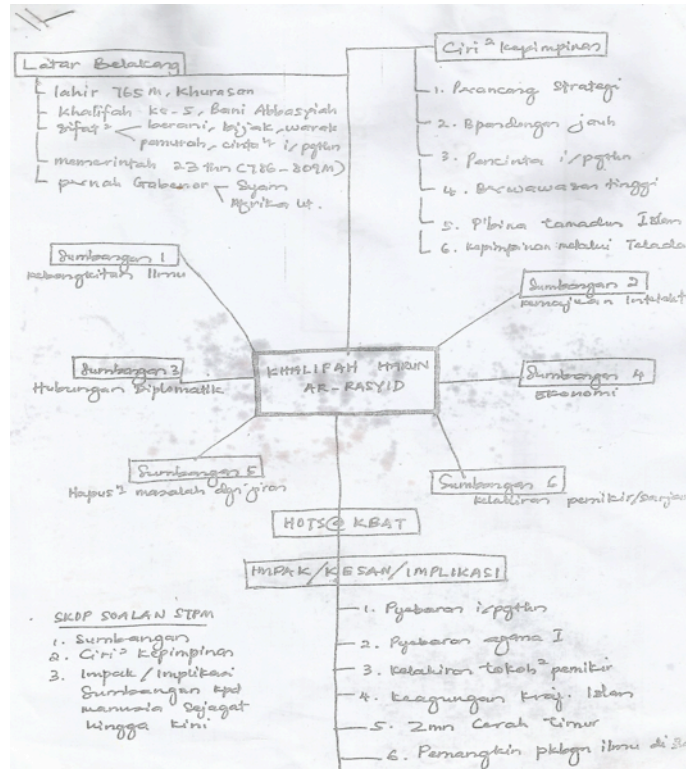 Latar Belakang
lahir 765 m, Khurasan
Khalifah ke-5, Bani Abbasyiah
sifat² berani, bijak, warak
pemurah, cinta i/pgthn
memerintah 23 thn (786-809M)
pernah Gabenor Syam
Afrika Ut.
Ciri² Kepimpinan
1. Perancang Strategi
2. Bpandangan jauh
3. Pencinta i/pgthn
4. Berwawasan tinggi
5. P'bina tamadun Islam
6. Kepimpinan melalui Telada
Sumbangan 1
Kebangkitan Ilmu
Sumbangan 2
Kemajuan Intelekt
Sumbangan 3
Hubungan Diplomatik
KHALIFAH HARUN
AR-RASYID
Sumbangan 4
Ekonomi
Sumbangan 5
Hapus² masalah dgn jiran
Sumbangan 6
Kelahiran pemikir/sarjan
HOTS@ KBAT
IMPAK/KESAN/IMPLIKASI
1. Pyebaran i/pgthn
2. Pyebaran agama I
3. Kelahiran tokoh² pemikir
4. Keagungan Kraj. Islam
5. Zmn Cerah Timur
6. Pemangkin pkbgn ilmu di
SKOP SOALAN STPM
1. Sumbangan
2. Ciri² Kepimpinan
3. Impak / Implikasi
Sumbangan kpd
manusia Sejagat
hingga kini